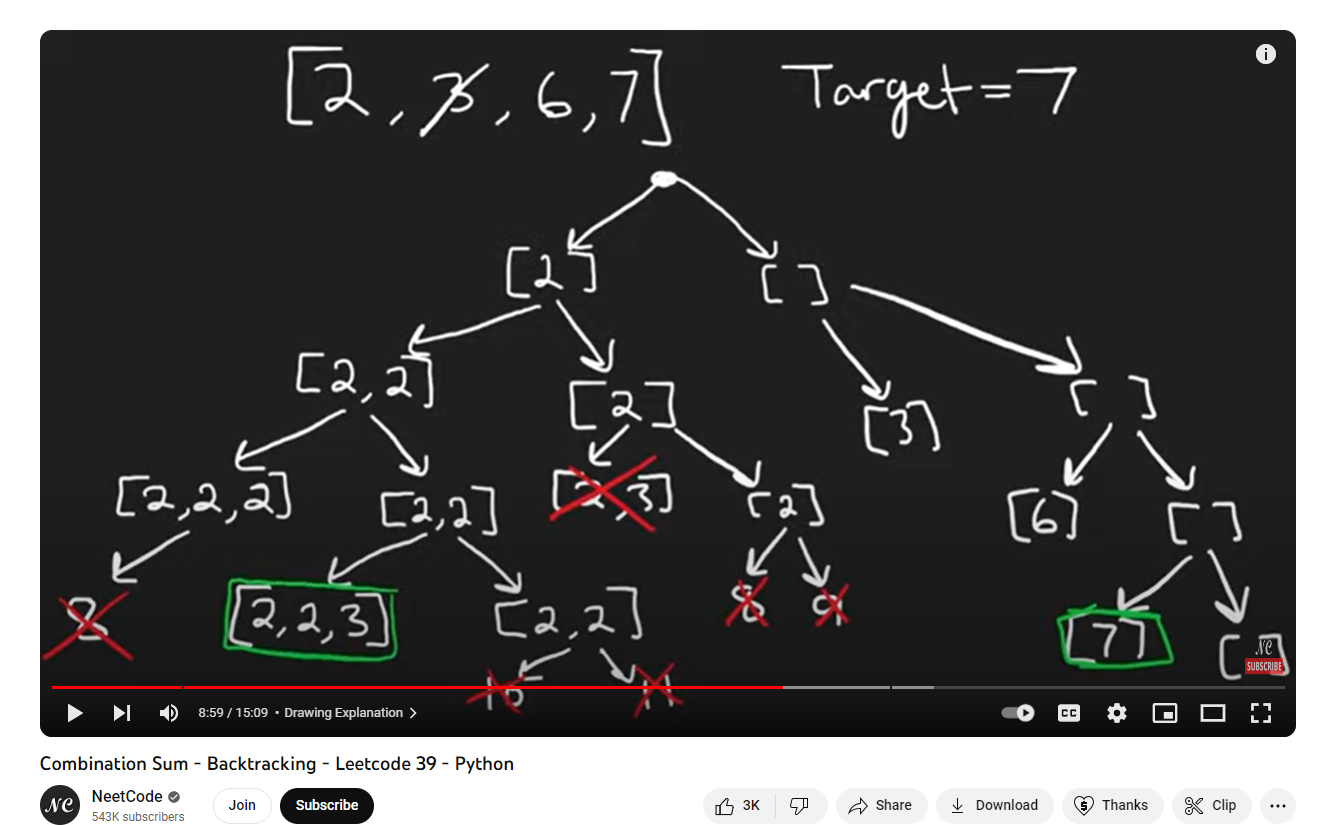 [2, 3, 6, 7] Target = 7
[2] [ ]
[2,2] [2] [3] [ ]
[2,2,2] [2,2] [2,3] [2] [6] [ ]
8 [2,2,3] [2,2] 8 9 [7] [ ]
10 11
NC
SUBSCRIBE
8:59 / 15:09 • Drawing Explanation >
CC
Combination Sum - Backtracking - Leetcode 39 - Python
NC NeetCode Join Subscribe 3K Share Download Thanks Clip ...
543K subscribers